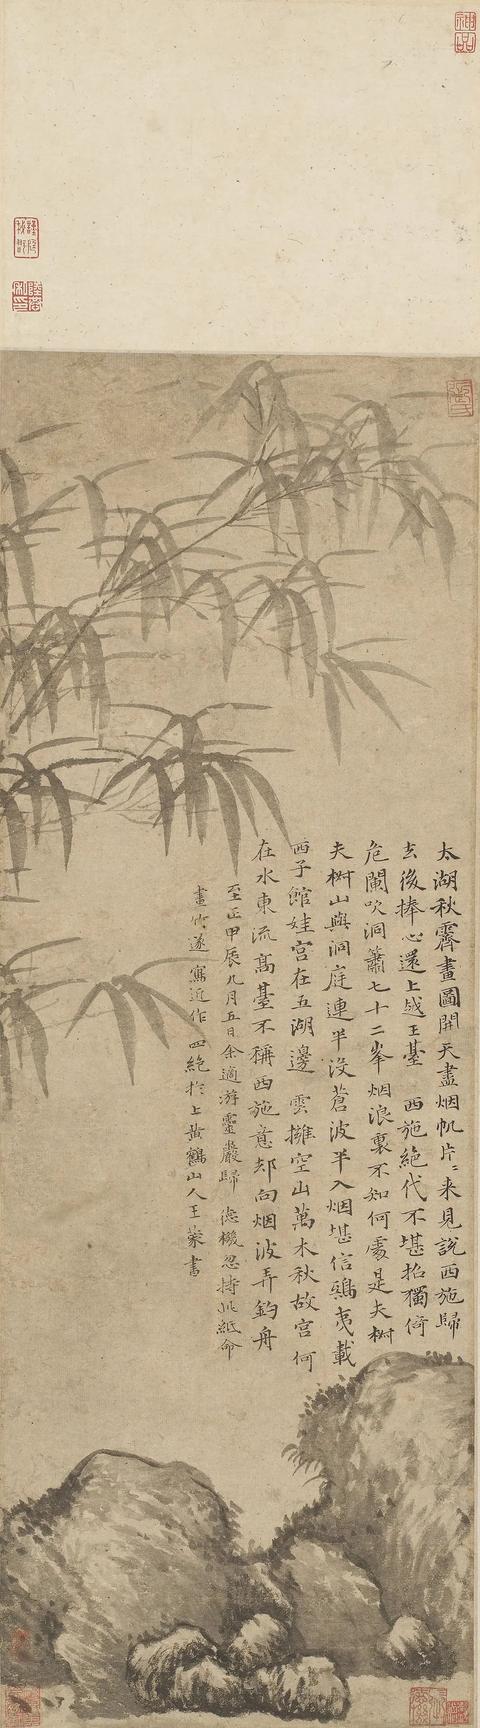 太湖秋霽畫圖開天盡烟帆片〻来見說西施歸
去後捧心還上越王臺　西施絕代不堪招獨倚
危闌吹洞簫七十二峯烟浪裏不知何處是夫椒
夫椒山與洞庭連半没蒼波半入烟堪信鴟夷載
西子館娃宮在五湖邊　雲擁空山萬木秋故宮何
在水東流高臺不稱西施意却向烟波弄釣舟
至正甲辰九月五日余適游靈巖歸　德機忽持此紙命
畫竹遂寫近作四絕於上黃鶴山人王蒙書